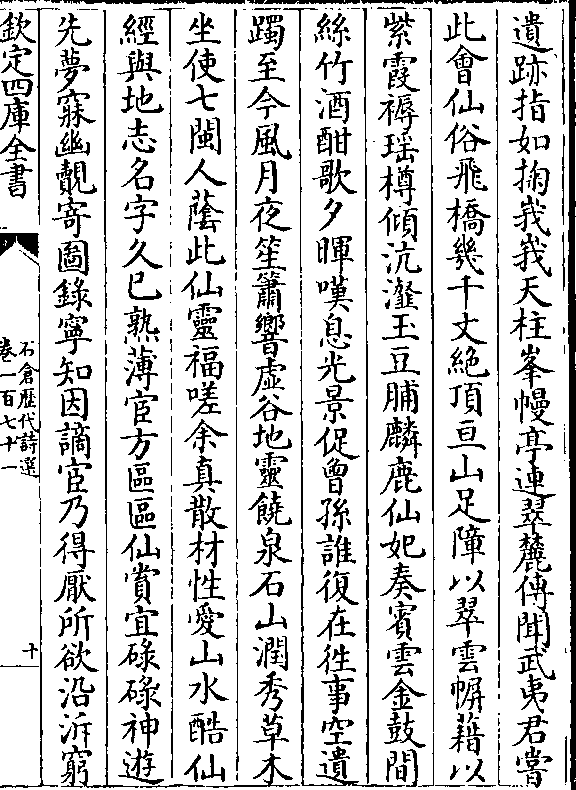 遺跡指如掬峩峩天柱峯幔亭連翠麓傳聞武夷君嘗
此會仙俗飛橋幾千丈絶頂亘山足障以翠雲幈藉以
紫霞褥瑶樽傾沆瀣玉豆脯麟鹿仙妃奏賓雲金鼓間
絲竹酒酣歌夕暉嘆息光景促曾孫誰復在徃事空遺
躅至今風月夜笙簫響虛谷地靈饒泉石山潤秀草木
坐使七閩人蔭此仙靈福嗟余真散材性愛山水酷仙
經與地志名字久已熟薄宦方區區仙賞宜碌碌神逰
先夢寐幽覿寄圖錄寧知因謫宦乃得厭所欲沿泝窮
欽定四庫全書
石倉歷代詩選
卷一百七十一
十